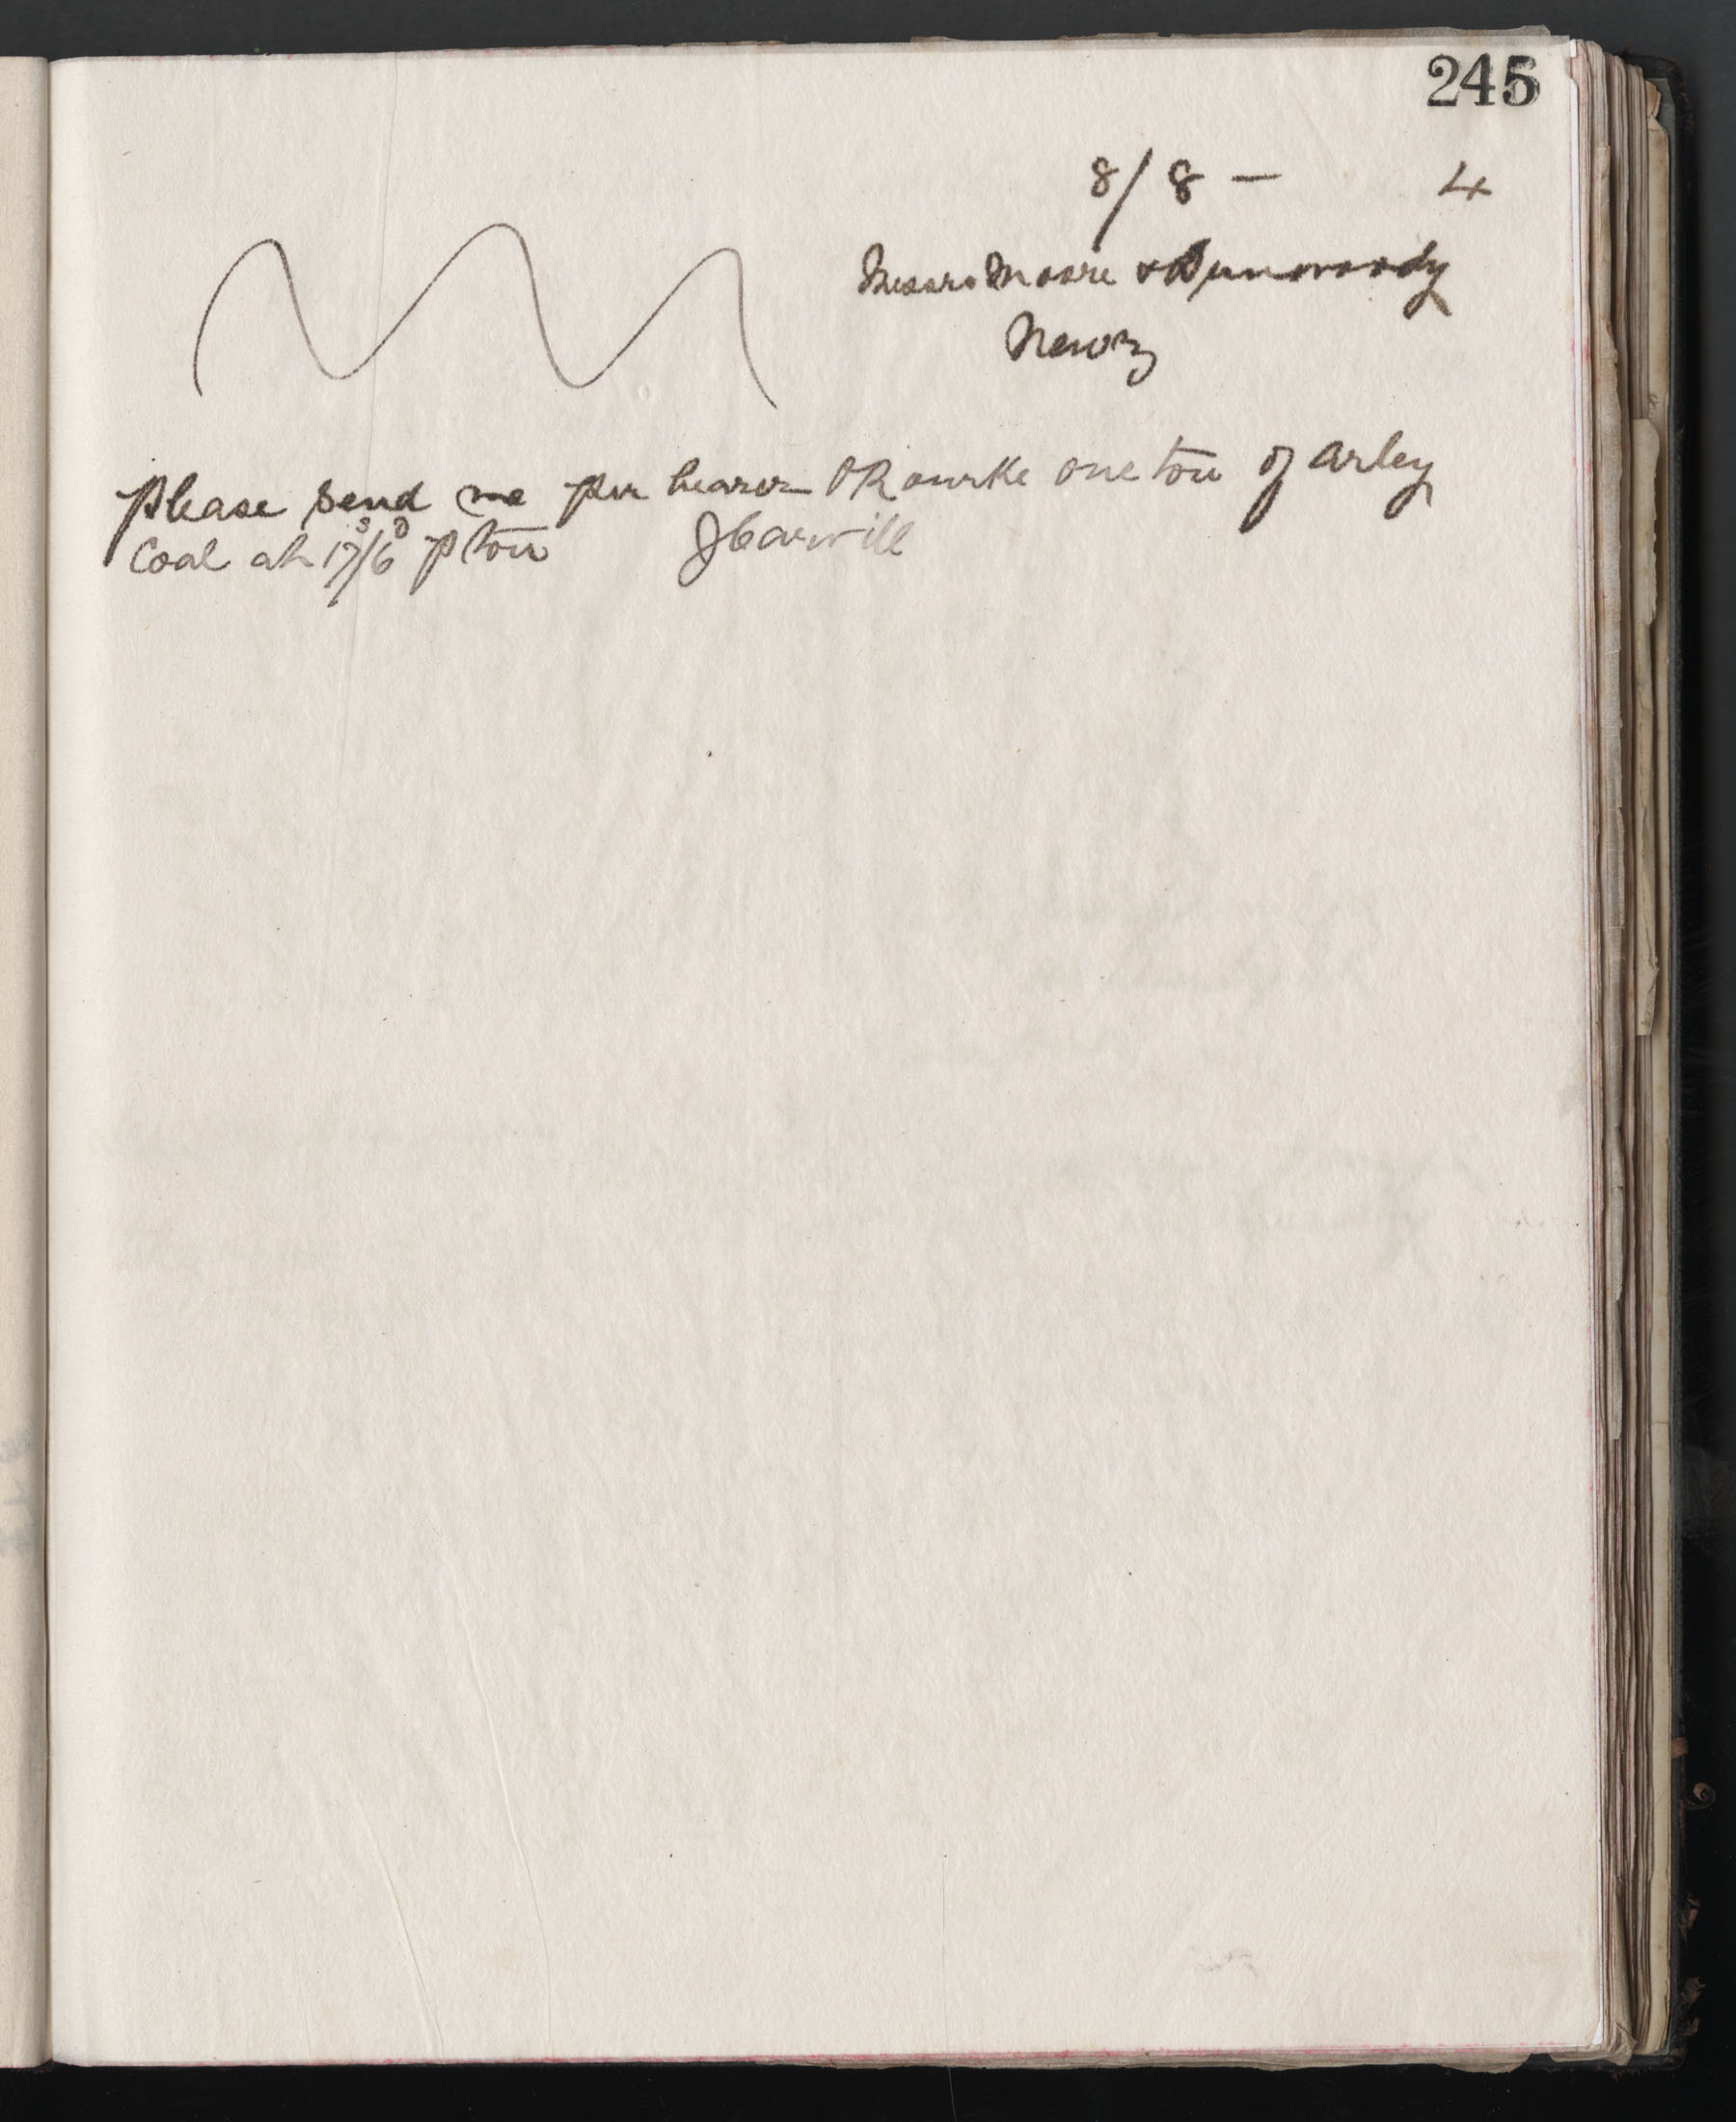 245
8/8 - 4
Messrs Moore & Dunwoody
Newry
Please send me per bearer ORourke one ton of Arley
Coal at 17s/6D p ton JCarvill